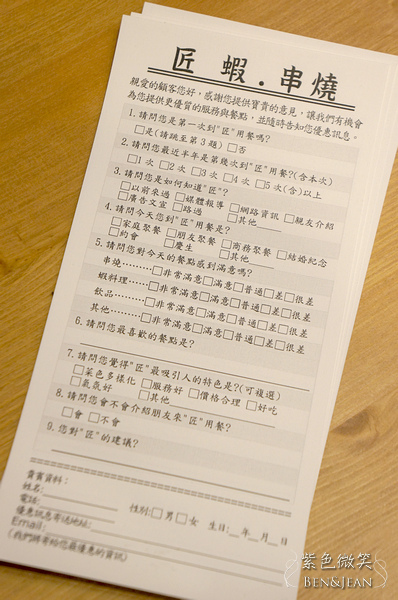 匠 蝦.串燒
親愛的顧客您好,感謝您提供寶貴的意見,讓我們有機會
為您提供更優質的服務與餐點,並隨時告知您優惠訊息。
1.請問您是第一次到"匠"用餐嗎?
□是(請跳至第3題)□否
2.請問您最近半年是第幾次到"匠"用餐?(含本次)
□1次 □2次 □3次 □4次 □5次(含)以上
3.請問您是如何知道"匠"?
□以前來過 □媒體報導 □網路資訊 □親友介紹
□廣告文宣 □路過 □其他
4.請問今天您到"匠"用餐是?
□家庭聚餐 □朋友聚餐 □商務聚餐 □結婚紀念
□約會 □慶生 □其他
5.請問您對今天的餐點感到滿意嗎?
串燒………□非常滿意□滿意□普通□差□很差
蝦料理……□非常滿意□滿意□普通□差□很差
飲品………□非常滿意□滿意□普通□差□很差
其他………□非常滿意□滿意□普通□差□很差
6.請問您最喜歡的餐點是?
7.請問您覺得"匠"最吸引人的特色是?(可複選)
□菜色多樣化 □服務好 □價格合理 □好吃
□氣氛好 □其他
8.請問您會不會介紹朋友來"匠"用餐?
□會 □不會
9.您對"匠"的建議?
貴賓資料:
姓名: 性別:□男□女 生日:__年__月__日
電話:
優惠訊息寄送地址:
Email:
(我們將寄給您最優惠的資訊)
紫色微笑
BEN&JEAN